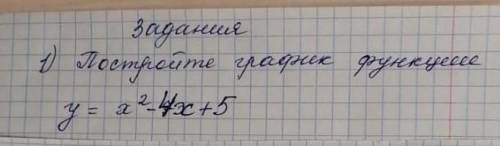 Задания
1) Постройте график функции
y = x²-4x+5